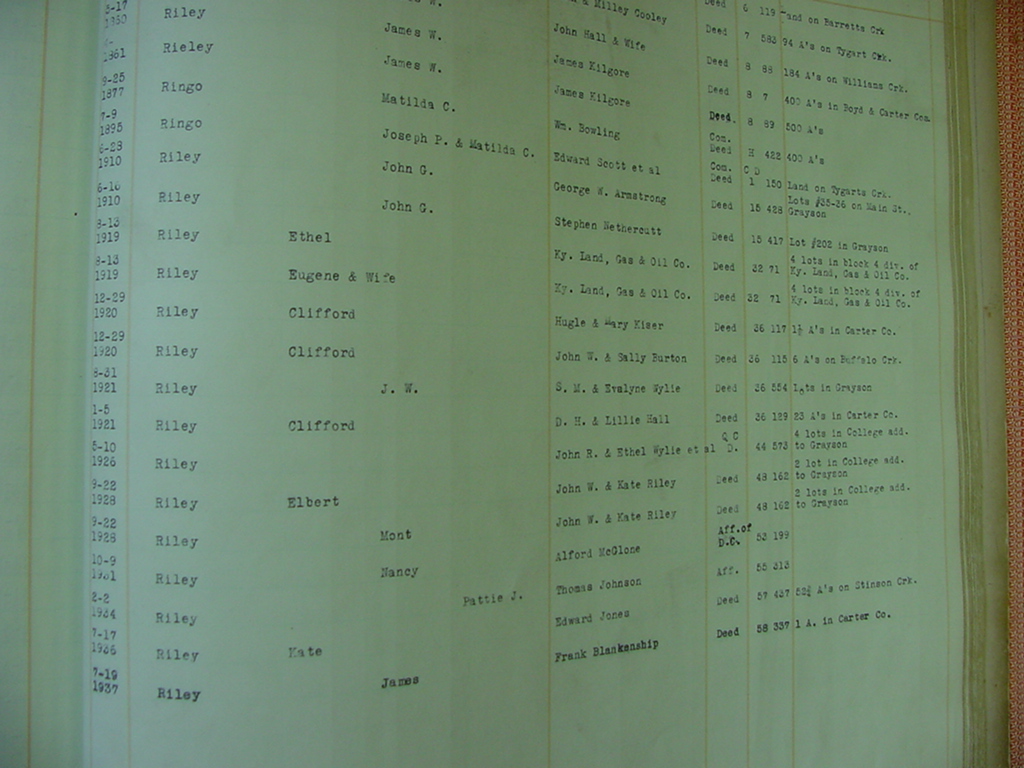 Deed 6 119 Land on Barretts Crk
W. & Milley Cooley Deed 7 583 94 A's on Tygart Crk.
8-17
1850 Riley James W. John Hall & Wife Deed 8 88 184 A's on Williams Crk.
1861 Rieley James W. James Kilgore Deed 8 7 400 A's in Boyd & Carter Com
9-25
1877 Ringo Matilda C. James Kilgore Deed. 8 89 500 A's
7-9 Com.
1895 Ringo Joseph P. & Matilda C. Wm. Bowling Deed H 422 400 A's
6-23 Com. C D
1910 Riley John G. Edward Scott et al Deed 1 150 Land on Tygarts Crk.
6-16 Lots #35-36 on Main St.,
1910 Riley John G. George W. Armstrong Deed 15 428 Grayson
Stephen Nethercutt Deed 15 417 Lot #202 in Grayson
8-13 4 lots in block 4 div. of
1919 Riley Ethel Ky. Land, Gas & Oil Co. Deed 32 71 Ky. Land, Gas & Oil Co.
8-13 4 lots in block 4 div. of
1919 Riley Eugene & Wife Ky. Land, Gas & Oil Co. Deed 32 71 Ky. Land, Gas & Oil Co.
12-29
1920 Riley Clifford Hugle & Mary Kiser Deed 36 117 1½ A's in Carter Co.
12-29
1920 Riley Clifford John W. & Sally Burton Deed 36 115 6 A's on Buffalo Crk.
8-31
1921 Riley J. W. S. M. & Evalyne Wylie Deed 36 554 Lots in Grayson
1-5
1921 Riley Clifford D. H. & Lillie Hall Deed 36 129 23 A's in Carter Co.
5-10 Q C 4 lots in College add.
1926 Riley John R. & Ethel Wylie et al D. 44 573 to Grayson
9-22 2 lot in College add.
1928 Riley Elbert John W. & Kate Riley Deed 48 162 to Grayson
9-22 2 lots in College add.
1928 Riley Mont John W. & Kate Riley Deed 48 162 to Grayson
10-9 Aff.of
1931 Riley Nancy Alford McGlone D.C. 53 199
2-2
1934 Riley Pattie J. Thomas Johnson Aff. 55 313
7-17
1936 Riley Kate Edward Jones Deed 57 437 52½ A's on Stinson Crk.
7-19
1937 Riley James Frank Blankenship Deed 58 337 1 A. in Carter Co.